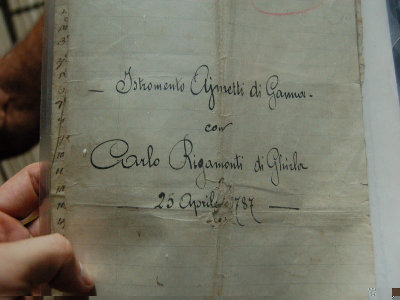 — Istromento Ajmetti di Ganna. —
con
Carlo Rigamonti di Ghirla
— 25 Aprile 1787 —